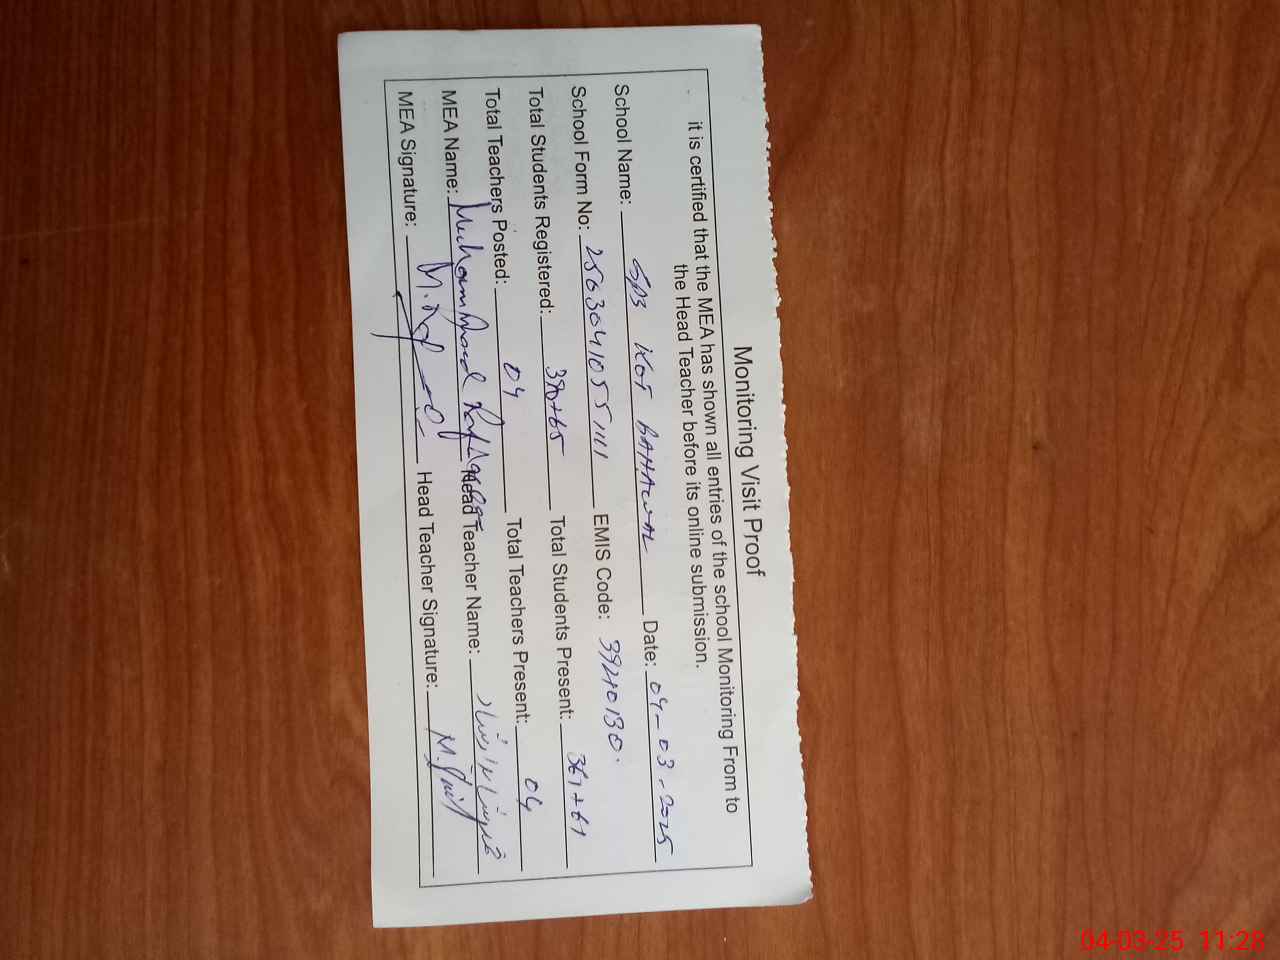 Monitoring Visit Proof
it is certified that the MEA has shown all entries of the school Monitoring From to
the Head Teacher before its online submission.
School Name: GPS KOT BAHAWAL Date: 04-03-2025
School Form No: 2503041055111 EMIS Code: 39210130.
Total Students Registered: 390+65 Total Students Present: 367+61
Total Teachers Posted: 04 Total Teachers Present: 04
MEA Name: Muhammad Head Teacher Name:
MEA Signature: Head Teacher Signature:
04-03-25 11:28